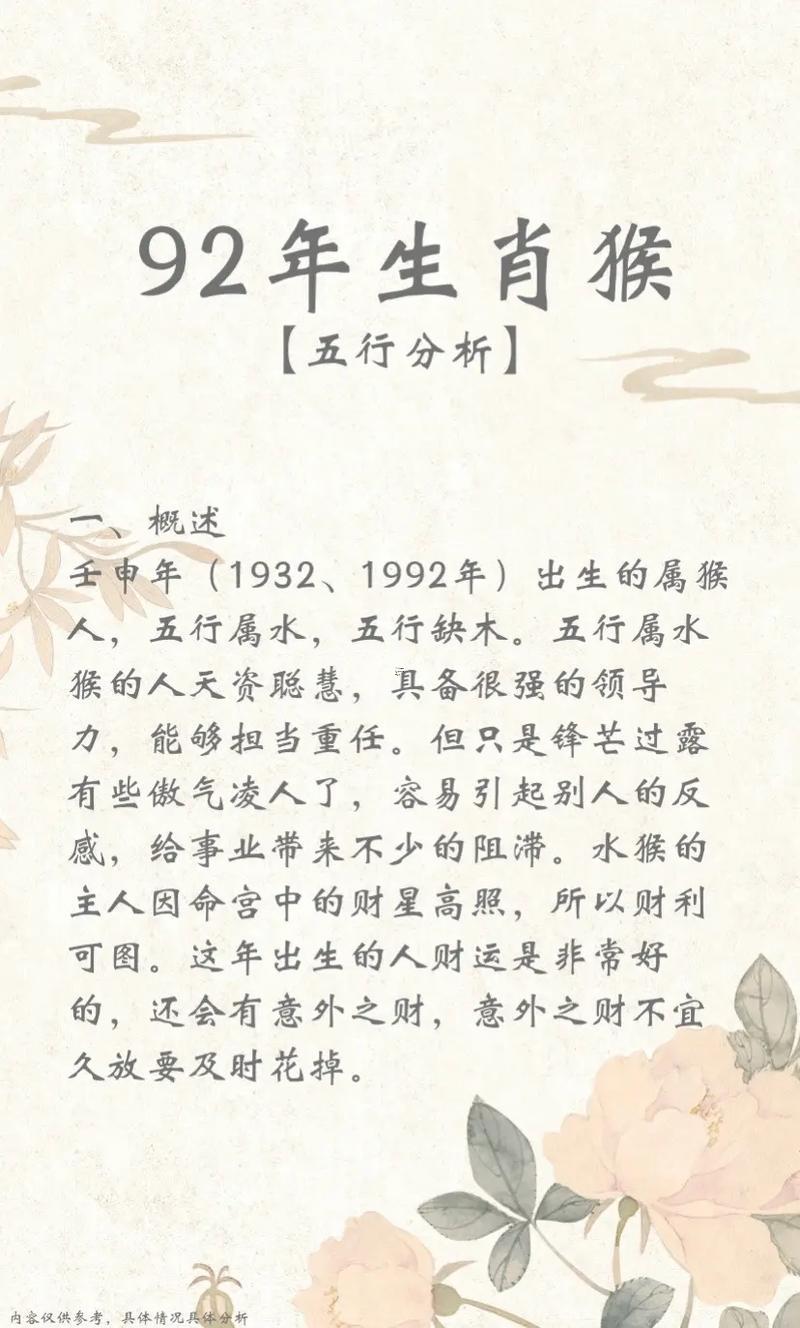 92年生肖猴
【五行分析】
一、概述
壬申年（1932、1992年）出生的属猴
人，五行属水，五行缺木。五行属水
猴的人天资聪慧，具备很强的领导
力，能够担当重任。但只是锋芒过露
有些傲气凌人了，容易引起别人的反
感，给事业带来不少的阻滞。水猴的
主人因命宫中的财星高照，所以财利
可图。这年出生的人财运是非常好
的，还会有意外之财，意外之财不宜
久放要及时花掉。
内容仅供参考，具体情况具体分析